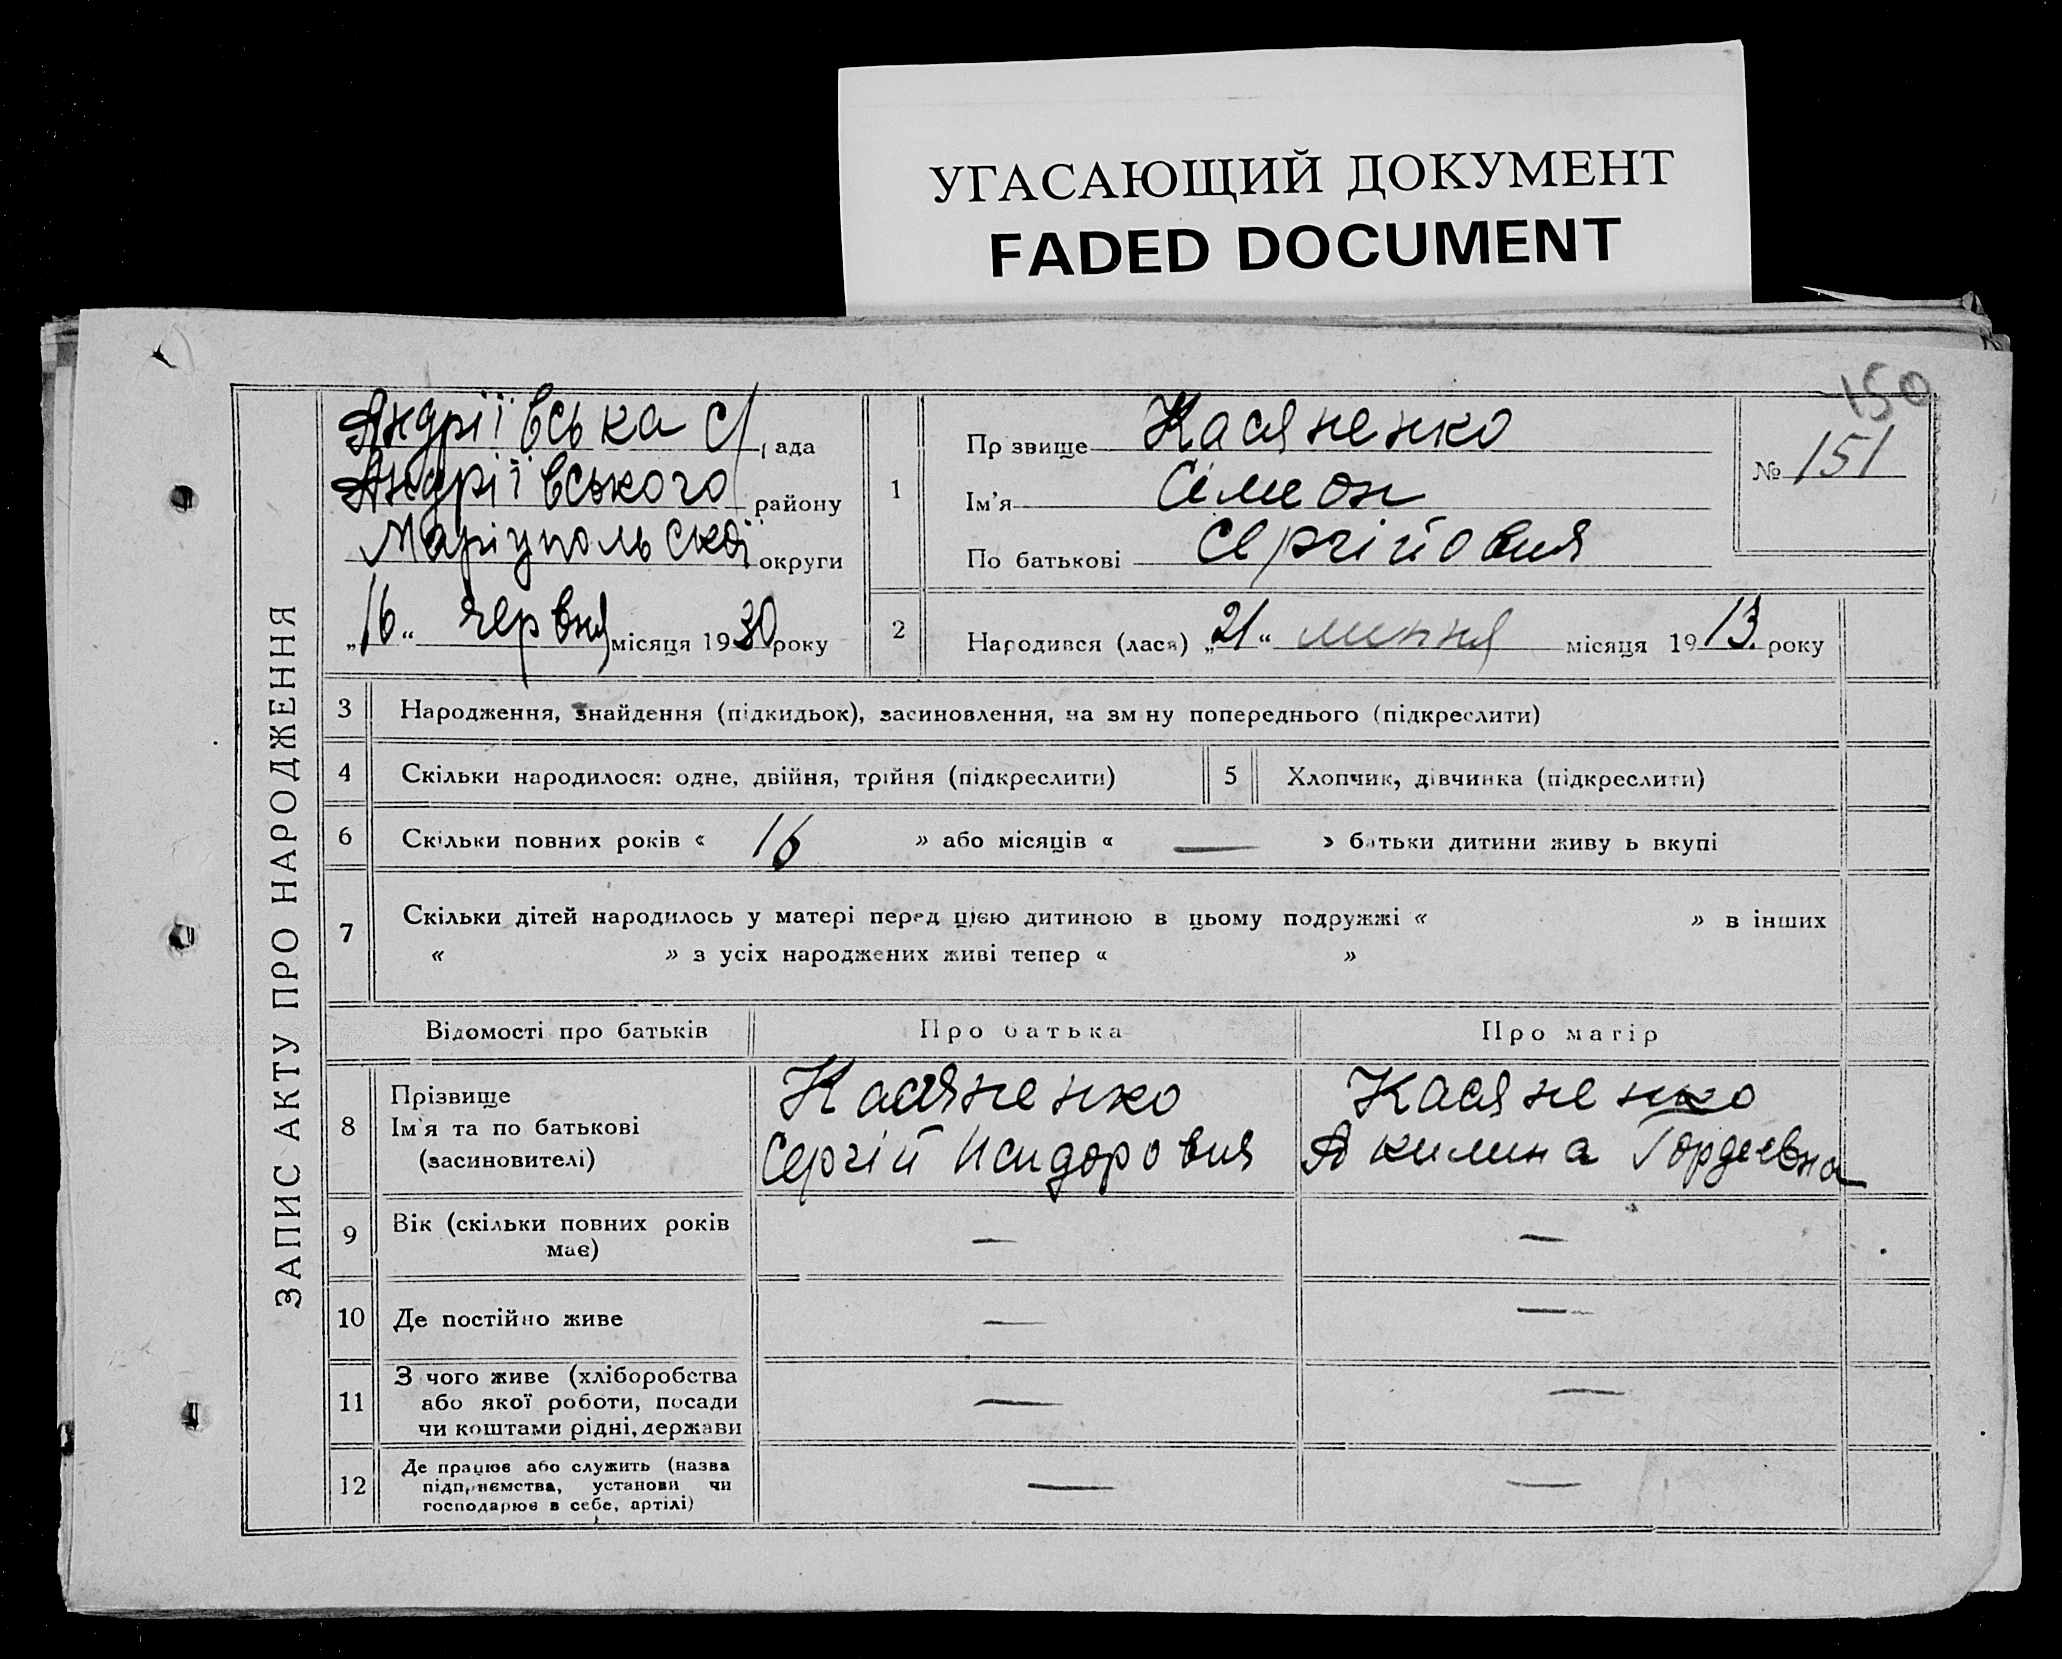 УГАСАЮЩИЙ ДОКУМЕНТ
FADED DOCUMENT
150
ЗАПИС АКТУ ПРО НАРОДЖЕННЯ
Андріївська с/рада
Андріївського району
Маріупольської округи
„16“ червня місяця 1930 року
1 Прізвище Касяненко
Ім'я Сімеон
По батькові Сергійович
№ 151
2 Народився (лася) „21“ липня місяця 1913. року
3 Народження, знайдення (підкидьок), засиновлення, на зміну попереднього (підкреслити)
4 Скільки народилося: одне, двійня, трійня (підкреслити) 5 Хлопчик, дівчинка (підкреслити)
6 Скільки повних років « 16 » або місяців « — » батьки дитини живуть вкупі
7 Скільки дітей народилось у матері перед цією дитиною в цьому подружжі « » в інших
« » з усіх народжених живі тепер « »
Відомості про батьків Про батька Про матір
8 Прізвище
Ім'я та по батькові
(засиновителі)
Касяненко
Сергій Исидорович
Касяненко
Якилина Гордеевна
9 Вік (скільки повних років
має) — —
10 Де постійно живе — —
11 З чого живе (хліборобства
або якої роботи, посади
чи коштами рідні, держави — —
12 Де працює або служить (назва
підприємства, установи чи
господарює в себе, артілі) — —